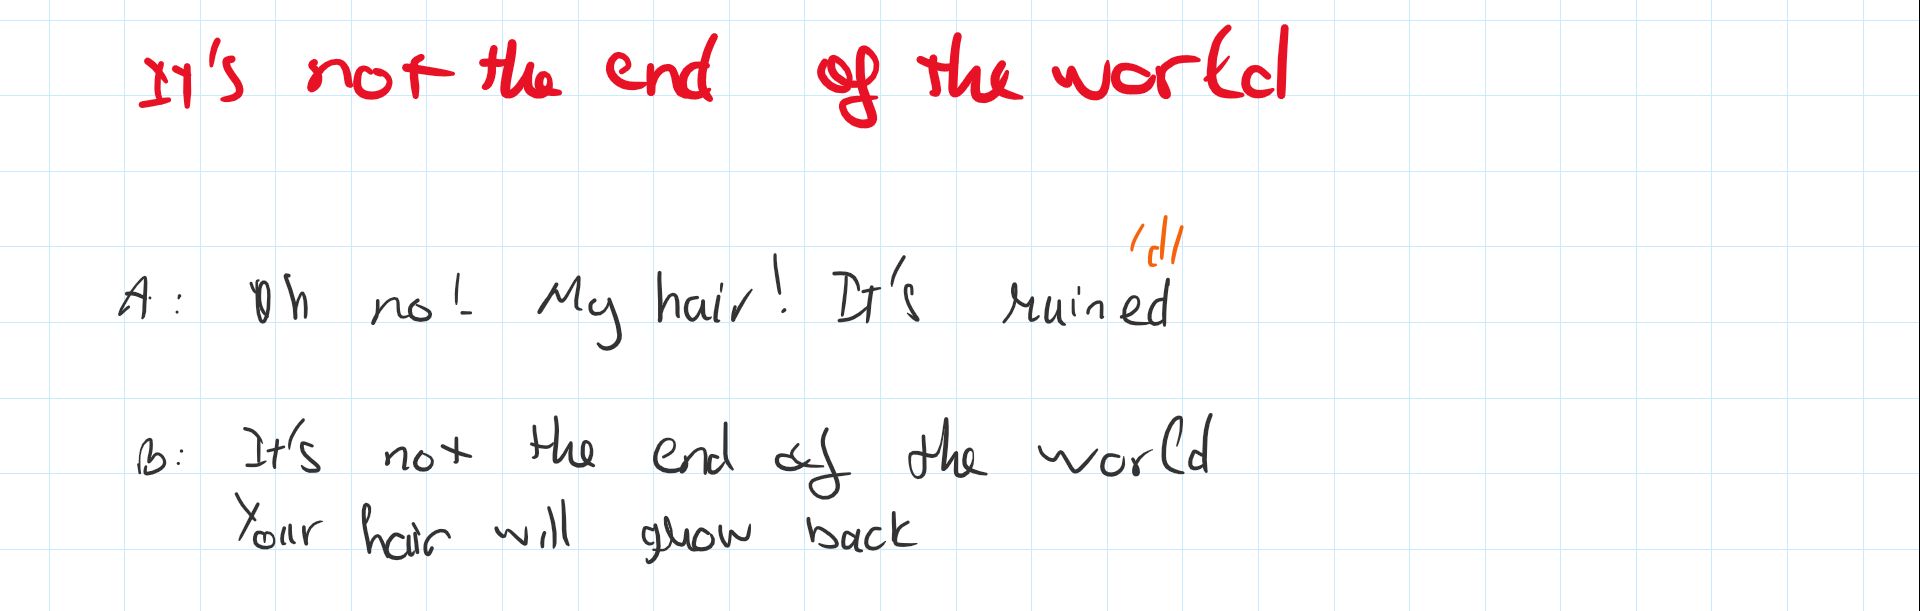 It's not the end of the world
/d/
A: Oh no! My hair! It's ruined
B: It's not the end of the world
Your hair will grow back